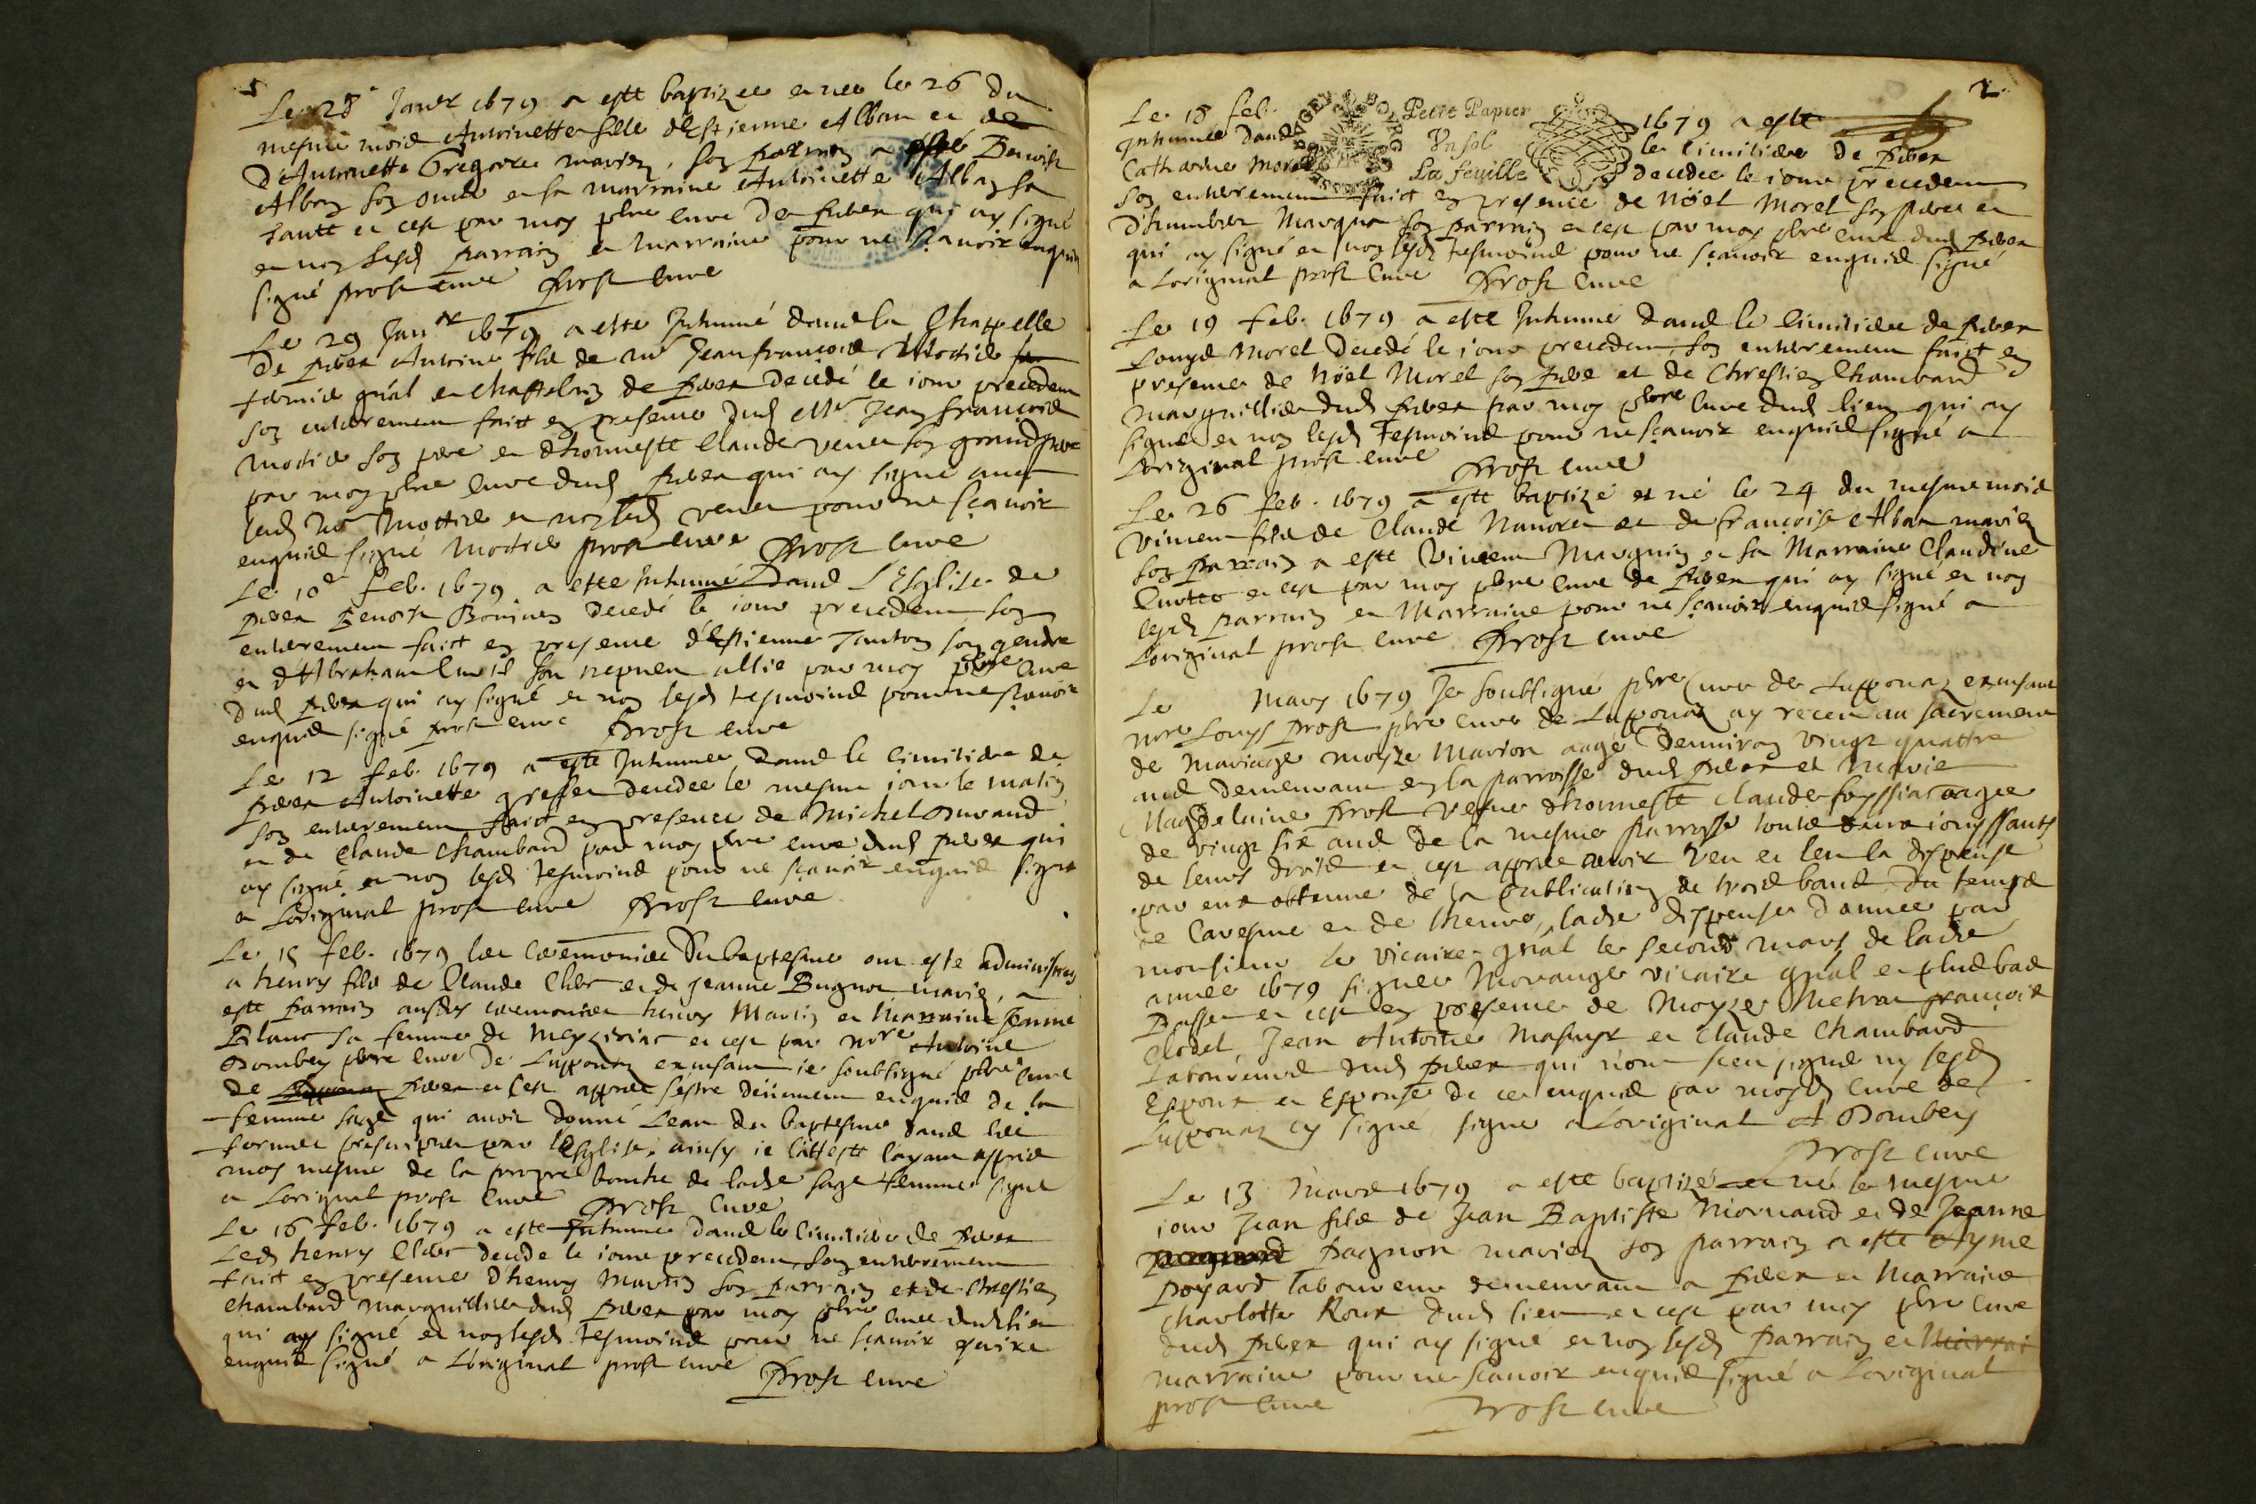 Le 28e Janer 1679 a este baptizee et nee le 26 du
mesme mois Antoinette fille d'Estienne Alban et de
d'Antoinette Gregoire mariez, son parrain a esté Benoist
Alban son oncle et sa marraine Antoinette Alban sa
tante et cest par moy pbre cure de qui ay signé
et non lesds parrain et marraine pour ne scavoir enquis
signé prost cure Prost cure
Le 29 Janer 1679 a este Inhumé dans la Chappelle
de Antoine fils de Me Jean françois
gnal et Chastelain de decedé le iour precedent
son enterrement faict en presence dud Mr Jean françois
son pere et d'honneste Claude venet son grand pere
par moy pbre cure dud qui ay signé avec
led Mr et non led venet pour ne scavoir
enquis signé prost cure Prost cure
Le 10e feb. 1679 a este Inhumé dans L'Esglise de
Benoist decedé le iour precedent son
enterrement faict en presence d'Estienne son gendre
et d'Abraham son nepveu allié par moy pbre cure
dud qui ay signé et non lesds tesmoins pour ne scavoir
enquis signé prost cure Prost cure
Le 12 feb. 1679 a este Inhumee dans le cimitiere de
Antoinette decedee le mesme iour le matin
son enterrement faict en presence de Michel Durand
et de Claude Chambard par moy pbre cure dud qui
ay signé et non lesds tesmoins pour ne scavoir enquis signé
a Loriginal prost cure Prost cure
Le 15 feb. 1679 les ceremonies du baptesme ont este administrees
a henry fils de Claude Clerc et de Jeanne Bugnot mariez, a
este parrain ausdes ceremonies henry Martin et Marraine Jeanne
Blanc sa femme de Meyziriat et cest par Mre Antoine
Dombey pbre cure de Lupponaz ie soubsigné pbre cure
de et cest apres s'estre deüement enquis de la
femme sage qui avoit donné L'eau du baptesme dans les
formes prescriptes par l'Esglise, ainsy ie l'atteste l'ayant appris
moy mesme de la propre bouche de ladte sage femme signé
a Loriginal prost cure Prost cure
Le 16 feb. 1679 a este Inhumé dans le cimitiere de
Led henry Clerc decedé le iour precedent son enterrement
faict en presence d'henry Martin son parrain et de Chrestien
Chambard marguillier dud par moy pbre cure dud lieu
qui ay signé et non lesds tesmoins pour ne scavoir escrire
enquis signé a Loriginal prost cure
Prost cure
2
Petit Papier
Un sol
La feuille
Le 18 feb. 1679 a este
Inhumee dans le cimitiere de
Catherine Morel decedee le iour precedent
son enterrement faict en presence de Noël Morel son pere et
d'humbert son parrain et cest par moy pbre cure dud
qui ay signé et non lesds tesmoins pour ne scavoir enquis signé
a Loriginal prost cure Prost cure
Le 19 feb. 1679 a este Inhumé dans le cimitiere de
Louys Morel decedé le iour precedent, son enterrement faict en
presence de Noël Morel son pere et de Chrestien Chambard
marguillier dud par moy pbre cure dud lieu qui ay
signé et non lesds tesmoins pour ne scavoir enquis signé a
Loriginal prost cure Prost cure
Le 26 feb. 1679 a este baptizé et né le 24 du mesme mois
Vincent fils de Claude et de françoise Alban mariez
son parrain a este Vincent Marguin et sa Marraine Claudine
et cest par moy pbre cure de qui ay signé et non
lesds parrain et Marraine pour ne scavoir enquis signé a
Loriginal prost cure Prost cure
Le Mars 1679 Je soubsigné pbre cure de Lupponaz
Mre Louys prost pbre cure de Lupponaz ay receu au sacrement
de mariage moyse Marion aagé denviron vingt quattre
ans demeurant en la parroisse dud et Marie
Magdelaine Prost vefve d'honneste Claude aagee
de vingt six ans de la mesme parroisse touts deux iouyssants
de leurs droits et cest apres avoir veu et leu la dispense
par eux obtenue de la publication de trois bans du temps
de Caresme et de l'heure, ladte dispense donnee par
monsieur le vicaire gnal le second mars de ladte
annee 1679 signee Morange vicaire gnal et plus bas
et cest en presence de Moyse françois
Clodel Jean Antoine et Claude Chambard
Laboureurs dud qui n'ont sceu signé ny lesds
Espoux et Espouse de ce enquis par moyds cure de
Lupponaz ay signé signé a Loriginal A Dombey
Prost cure
Le 13 Mars 1679 a este baptizé et né le mesme
iour Jean fils de Jean Baptiste et de Jeanne
Pagnon mariez son parrain a este Ayme
Poyard laboureur demeurant a et Marraine
Charlotte Roux dud lieu et cest par moy pbre cure
dud qui ay signé et non lesds parrain et
marraine pour ne scavoir enquis signé a Loriginal
prost cure Prost cure